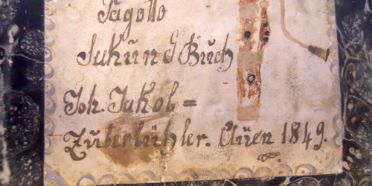 Fagotto
Sukund Buch
Joh. Jakob =
Zuberbühler. Auen 1849.